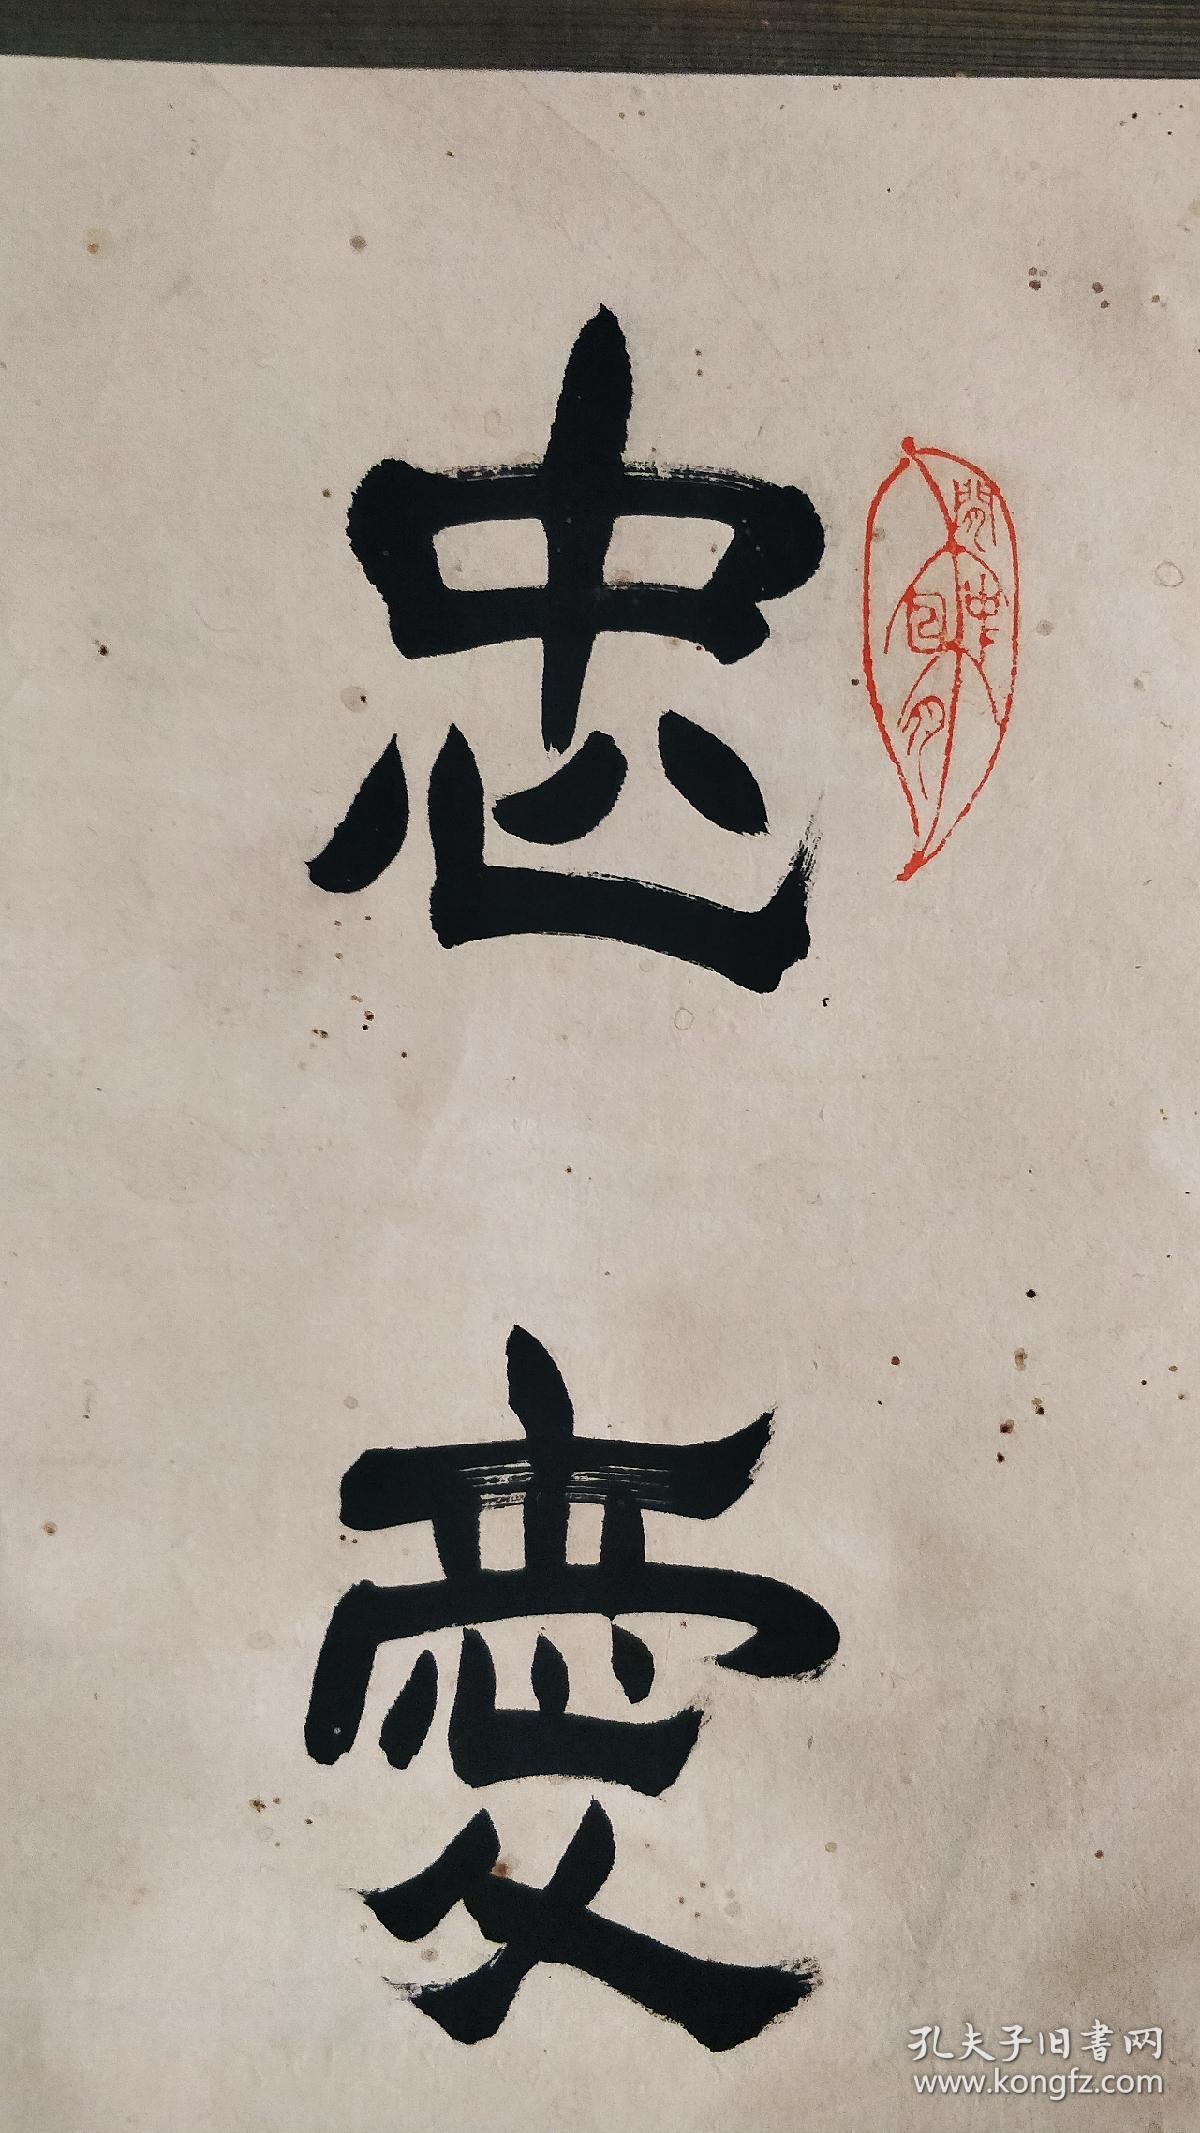 忠
愛
孔夫子旧書网
www.kongfz.com